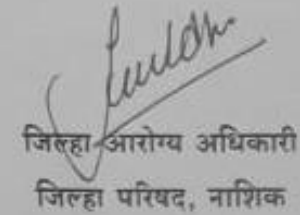 जिल्हा आरोग्य अधिकारी
जिल्हा परिषद, नाशिक